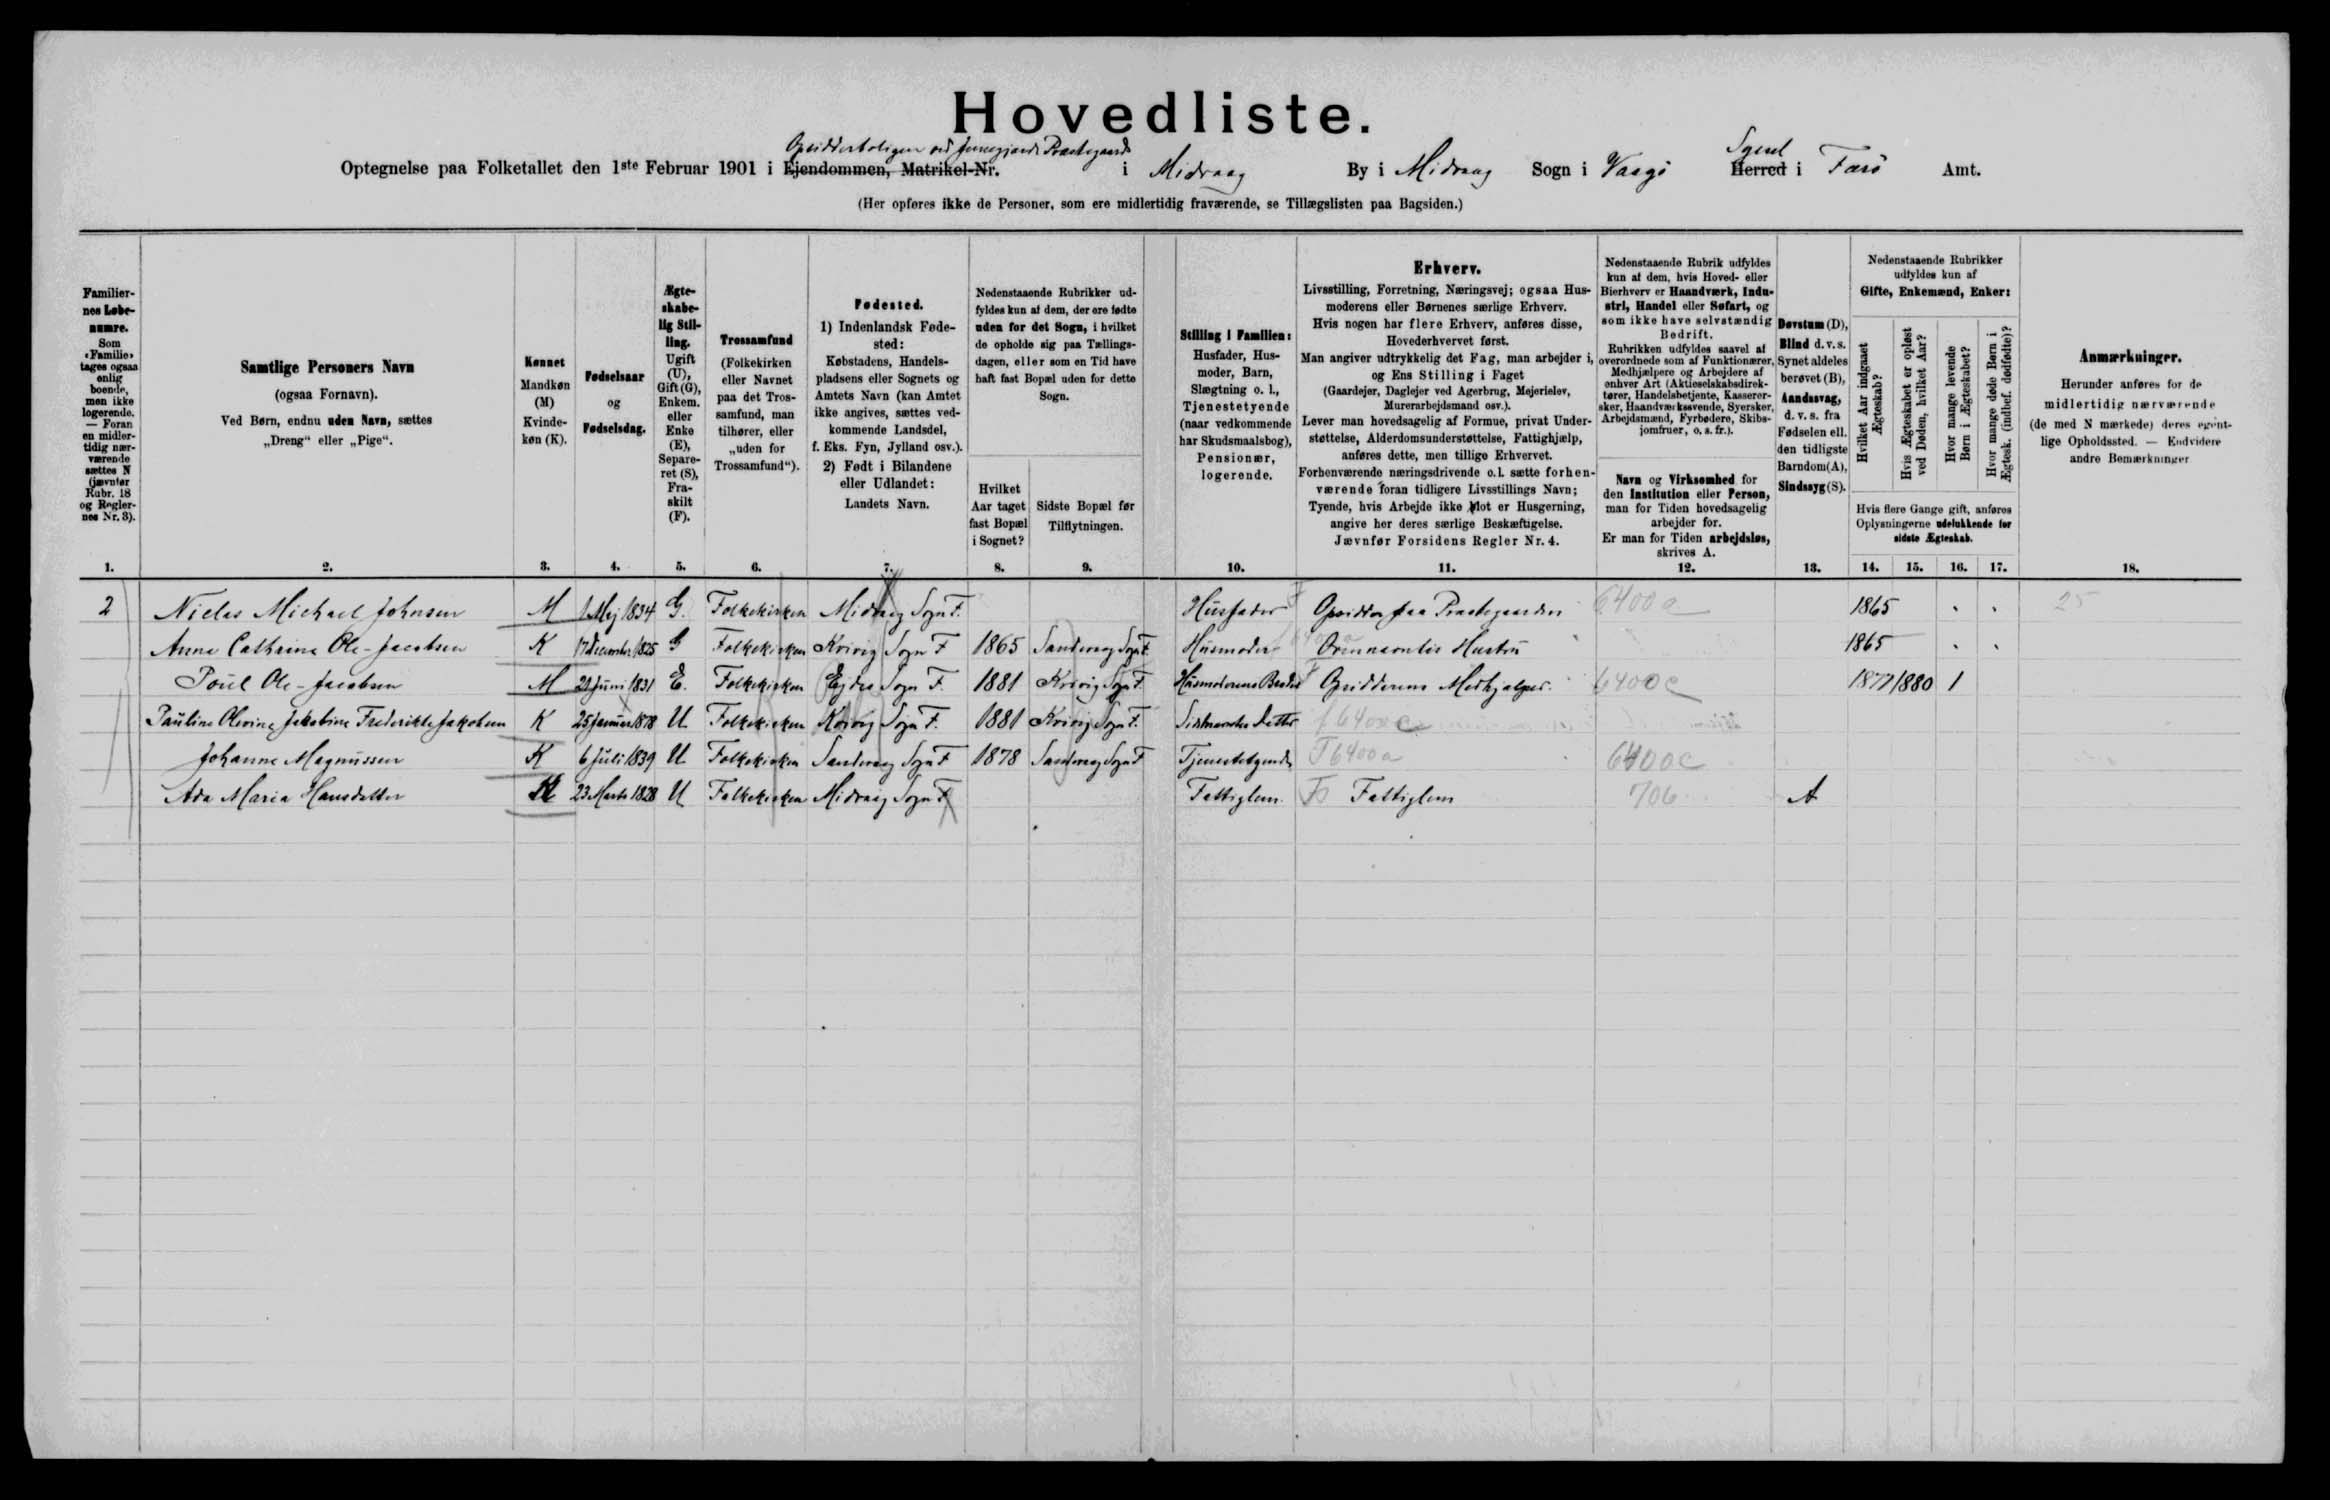 Hovedliste.
Opsidderboligen ved Jensagjærde Præstegaard
Optegnelse paa Folketallet den 1ste Februar 1901 i Ejendommen, Matrikel-Nr. i Midvaag By i Midvaag Sogn i Vaagø Sysel Herred i Færø Amt.
(Her opføres ikke de Personer, som ere midlertidig fraværende, se Tillægslisten paa Bagsiden.)
Familiernes Løbenumre.
Som «Familie» tages ogsaa enlig boende, men ikke logerende. — Foran en midlertidig nærværende sættes N (jævnfør Rubr. 18 og Reglernes Nr. 3).
1.
Samtlige Personers Navn
(ogsaa Fornavn).
Ved Børn, endnu uden Navn, sættes
„Dreng“ eller „Pige“.
2.
Kønnet
Mandkøn
(M)
Kvinde-
køn (K).
3.
Fødselsaar
og
Fødselsdag.
4.
Ægte-
skabe-
lig Stil-
ling.
Ugift
(U),
Gift (G),
Enkem.
eller
Enke
(E),
Separe-
ret (S),
Fra-
skilt
(F).
5.
Trossamfund
(Folkekirken
eller Navnet
paa det Tros-
samfund, man
tilhører, eller
„uden for
Trossamfund“).
6.
Fødested.
1) Indenlandsk Føde-
sted:
Købstadens, Handels-
pladsens eller Sognets og
Amtets Navn (kan Amtet
ikke angives, sættes ved-
kommende Landsdel,
f. Eks. Fyn, Jylland osv.).
2) Født i Bilandene
eller Udlandet:
Landets Navn.
7.
Nedenstaaende Rubrikker ud-
fyldes kun af dem, der ere fødte
uden for det Sogn, i hvilket
de opholde sig paa Tællings-
dagen, eller som en Tid have
haft fast Bopæl uden for dette
Sogn.
Hvilket
Aar taget
fast Bopæl
i Sognet?
8.
Sidste Bopæl før
Tilflytningen.
9.
Stilling i Familien:
Husfader, Hus-
moder, Barn,
Slægtning o. l.,
Tjenestetyende
(naar vedkommende
har Skudsmaalsbog),
Pensionær,
logerende.
10.
Erhverv.
Livsstilling, Forretning, Næringsvej; ogsaa Hus-
moderens eller Børnenes særlige Erhverv.
Hvis nogen har flere Erhverv, anføres disse,
Hovederhvervet først.
Man angiver udtrykkelig det Fag, man arbejder i,
og Ens Stilling i Faget
(Gaardejer, Daglejer ved Agerbrug, Mejerielev,
Murerarbejdsmand osv.).
Lever man hovedsagelig af Formue, privat Under-
støttelse, Alderdomsunderstøttelse, Fattighjælp,
anføres dette, men tillige Erhvervet.
Forhenværende næringsdrivende o. l. sætte forhen-
værende foran tidligere Livsstillings Navn;
Tyende, hvis Arbejde ikke blot er Husgerning,
angive her deres særlige Beskæftigelse.
Jævnfør Forsidens Regler Nr. 4.
11.
Nedenstaaende Rubrik udfyldes
kun af dem, hvis Hoved- eller
Bierhverv er Haandværk, Indu-
stri, Handel eller Søfart, og
som ikke have selvstændig
Bedrift.
Rubrikken udfyldes saavel af
overordnede som af Funktionærer,
Medhjælpere og Arbejdere af
enhver Art (Aktieselskabsdirek-
tører, Handelsbetjente, Kasserer-
sker, Haandværkssvende, Syersker,
Arbejdsmænd, Fyrbødere, Skibs-
jomfruer, o. s. fr.).
Navn og Virksomhed for
den Institution eller Person,
man for Tiden hovedsagelig
arbejder for.
Er man for Tiden arbejdsløs,
skrives A.
12.
Døvstum (D),
Blind d. v. s.
Synet aldeles
berøvet (B),
Aandssvag,
d. v. s. fra
Fødselen ell.
den tidligste
Barndom (A),
Sindssyg (S).
13.
Nedenstaaende Rubrikker
udfyldes kun af
Gifte, Enkemænd, Enker:
Hvilket Aar indgaaet Ægteskab?
Hvis Ægteskabet er opløst ved Døden, hvilket Aar?
Hvor mange levende Børn i Ægteskabet?
Hvor mange døde Børn i Ægtesk. (indbef. dødfødte)?
Hvis flere Gange gift, anføres
Oplysningerne udelukkende for
sidste Ægteskab.
14. 15. 16. 17.
Anmærkninger.
Herunder anføres for de
midlertidig nærværende
(de med N mærkede) deres egent-
lige Opholdssted. — Endvidere
andre Bemærkninger
18.
2 Niclas Michael Johnsen M 1 Maj 1834 G. Folkekirken Midvaag Sogn F. Husfader Opsidder paa Præstegaarden 6400a 1865 25
Anna Cathrine Ole-Jacobsen K 17 December 1825 G Folkekirken Kvivig Sogn F 1865 Sandevaag Sogn F Husmoder Ovennævntes Hustru 1865
Poul Ole-Jacobsen M 21 Juni 1831 E. Folkekirken Ejdes Sogn F. 1881 Kvivig Sogn F. Husmoderens Broder Opsidderens Medhjælper. 6400c 1877 1880 1
Pauline Olevine Jakobine Frederikke Jakobsen K 25 Januar 1878 U. Folkekirken Kvivig Sogn F. 1881 Kvivig Sogn F. Sidstnævntes Datter f 6400c
Johanne Magnussen K 6 Juli 1839 U. Folkekirken Sandevaag Sogn F 1878 Sandevaag Sogn F Tjenestetyende T 6400a 6400c
Ada Maria Hansdatter K 23 Marts 1828 U Folkekirken Midvaag Sogn F Fattiglem. Fattiglem 706 A